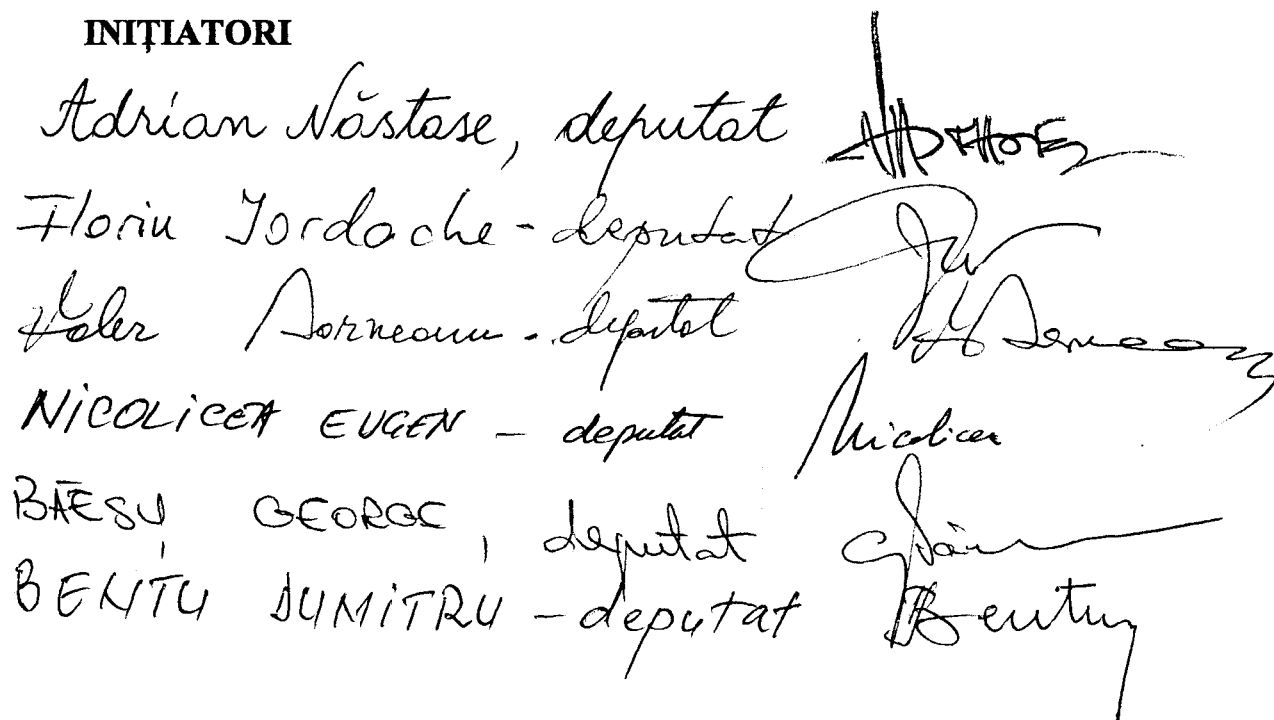 INIȚIATORI
Adrian Năstase, deputat
Florin Iordache - deputat
Valer Dorneanu - deputat
NICOLICEA EUGEN - deputat Nicolicea
BĂEȘU GEORGE, deputat
BENTU DUMITRU - deputat Bentu